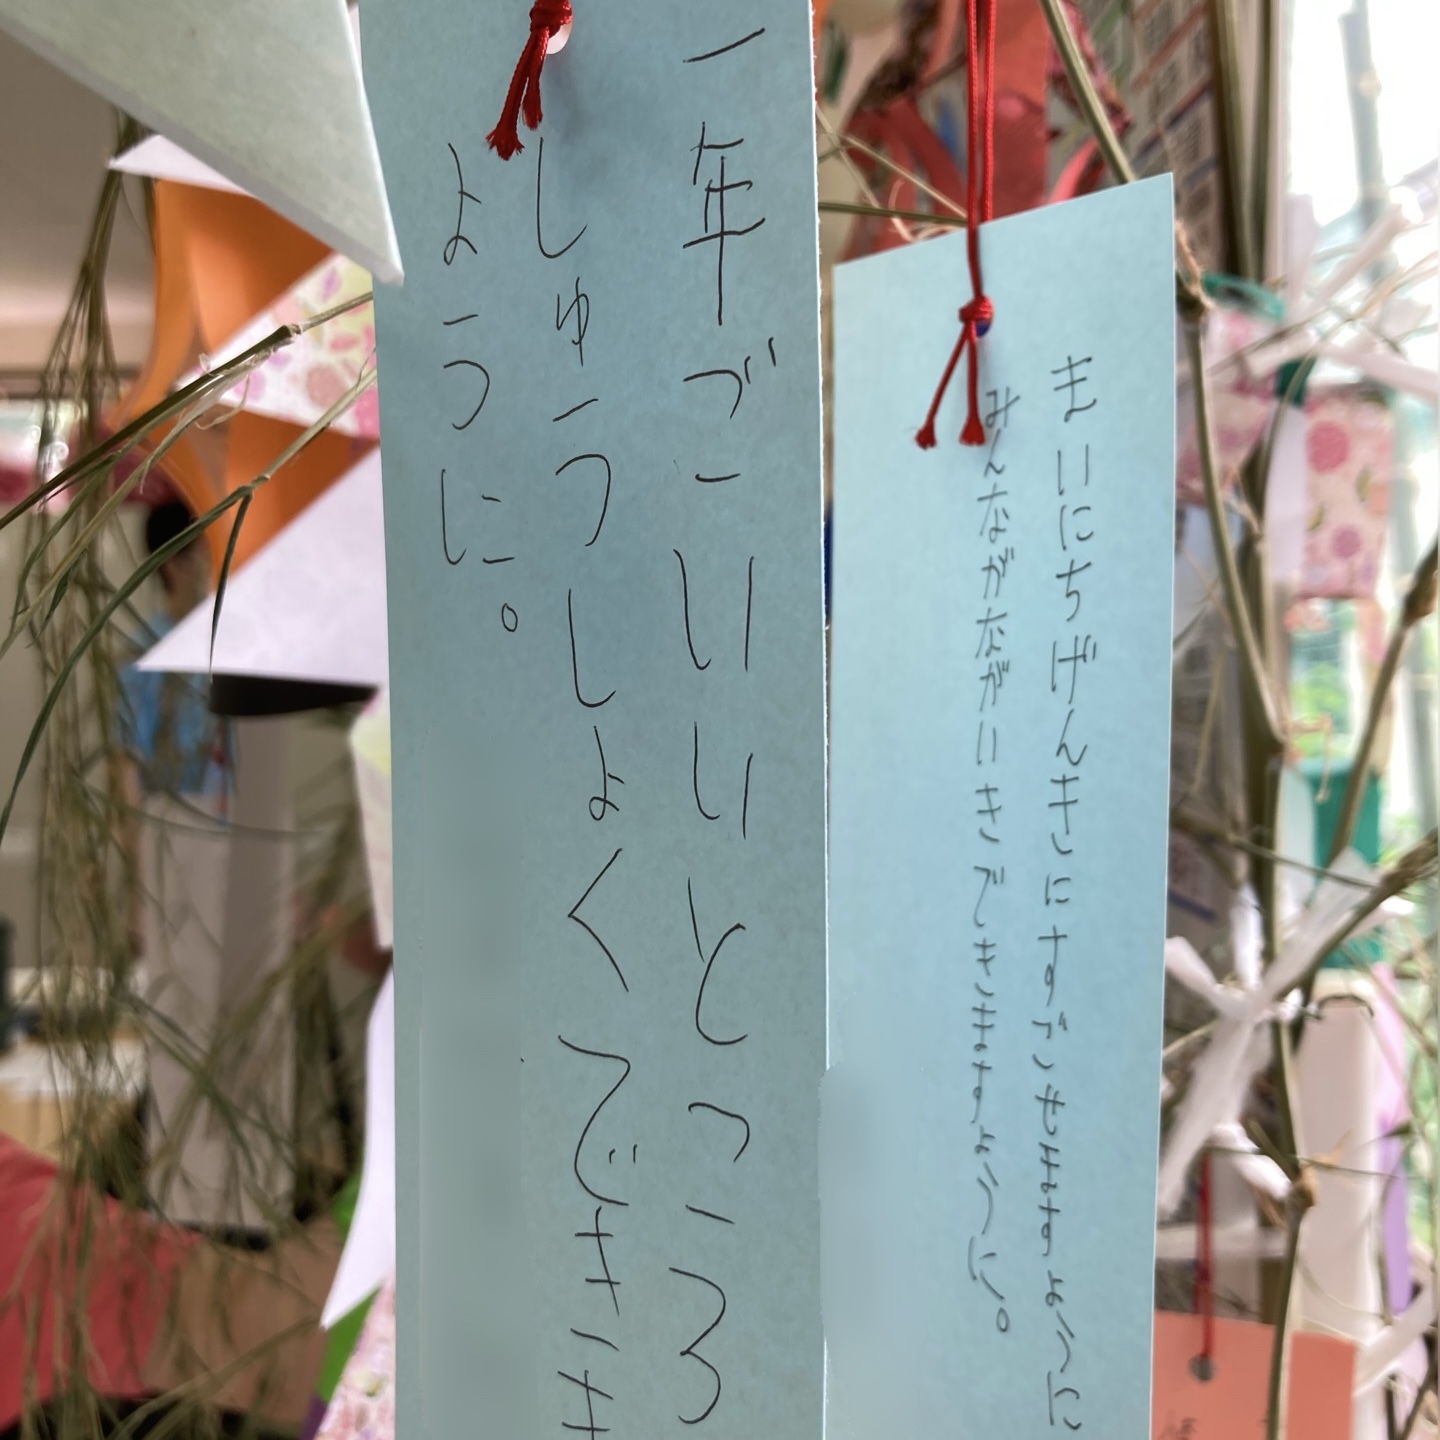 一年ごいいところ
しゅうしょくできま
ように。
まいにちげんきにすごせますように
みんながながいきできますように。